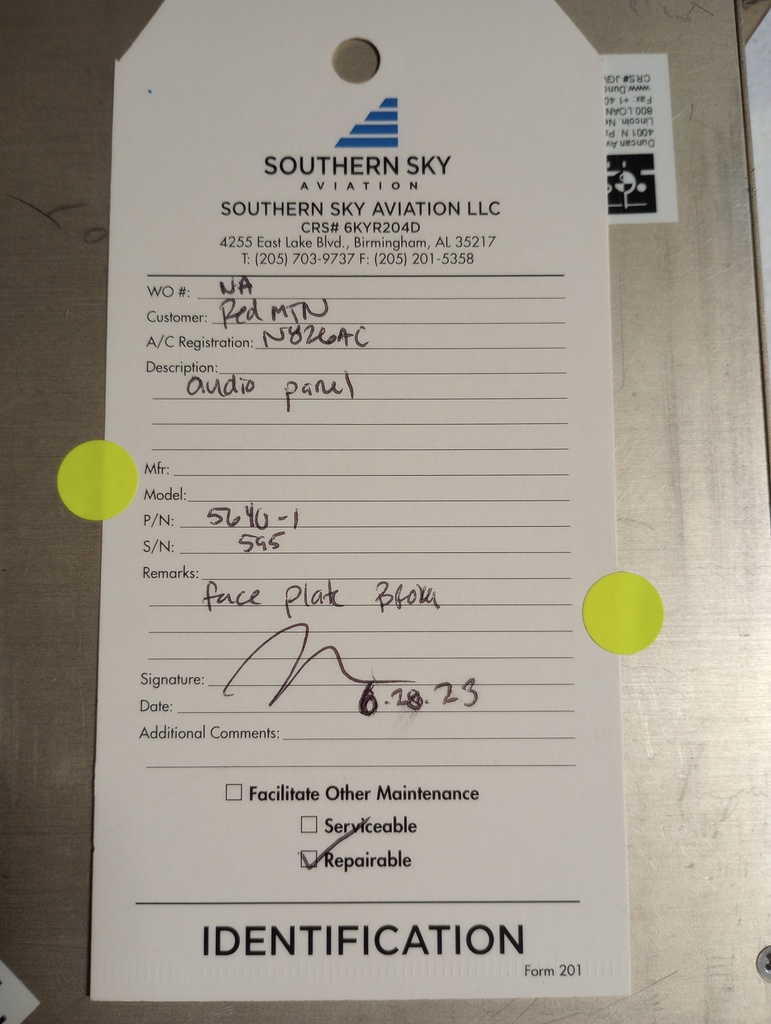 SOUTHERN SKY
AVIATION
SOUTHERN SKY AVIATION LLC
CRS# 6KYR204D
4255 East Lake Blvd., Birmingham, AL 35217
T: (205) 703-9737 F: (205) 201-5358
WO #: NA
Customer: Red MTN
A/C Registration: N826AC
Description:
audio panel
Mfr:
Model:
P/N: 5640-1
S/N: 595
Remarks:
face plate
Signature:
Date: 6.28.23
Additional Comments:
Facilitate Other Maintenance
Serviceable
Repairable
IDENTIFICATION
Form 201
Duncan Av
4001 N. Pa
Lincoln, Ne
800.LOAN
Fax: +1 40
www.Dunc
CRS# JGV